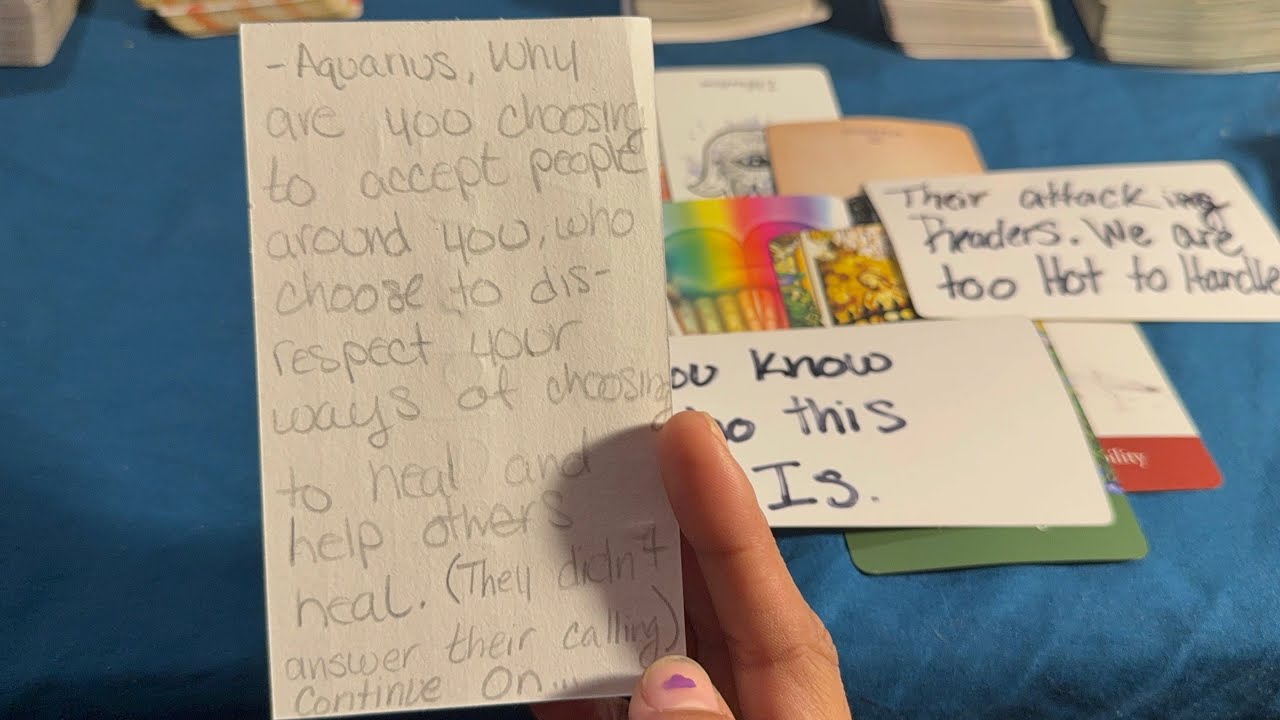 - Aquarius, Why
are you choosing
to accept people
around you, who
choose to dis-
respect your
ways of choosing
to heal and
help others
heal. (They didn't
answer their calling)
Continue On...
Their attacking
Readers. We are
too Hot to Handle
ou know
o this
Is.
ility